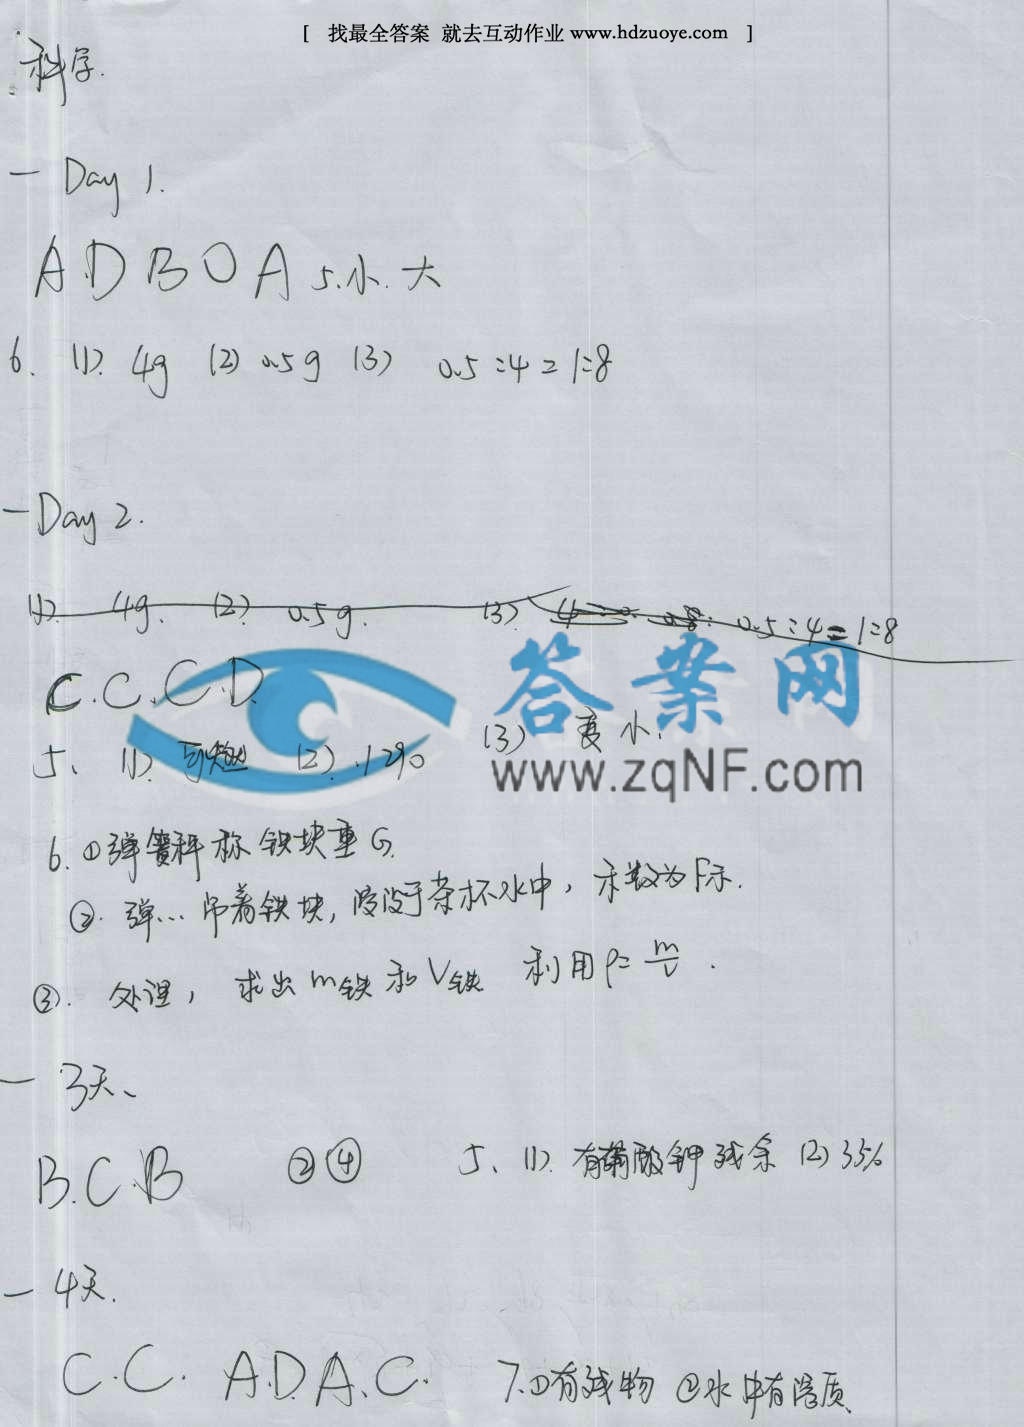 [ 找最全答案 就去互动作业 www.hdzuoye.com ]
科学.
一 Day 1.
A.D B O A 5.小.大
6. (1). 4g (2) 0.5g (3) 0.5:4=1:8
一Day 2.
(1). 4g. (2). 0.5g. (3) 0.5:4=1:8
答案网
C.C.C.D.
5、 (1). 可燃 (2). 1290 (3) 变小.
www.zqNF.com
6.①弹簧秤称铁块重G.
②. 弹…吊着铁块,浸没于茶杯水中,示数为F示.
③. 处理, 求出m铁和V铁 利用ρ=m/v.
一 3天、
B.C.B ②④ 5、(1). 有硝酸钾残余 (2) 35%
一 4天.
C.C. A.D.A.C. 7.①有残物 ②水中有溶质.